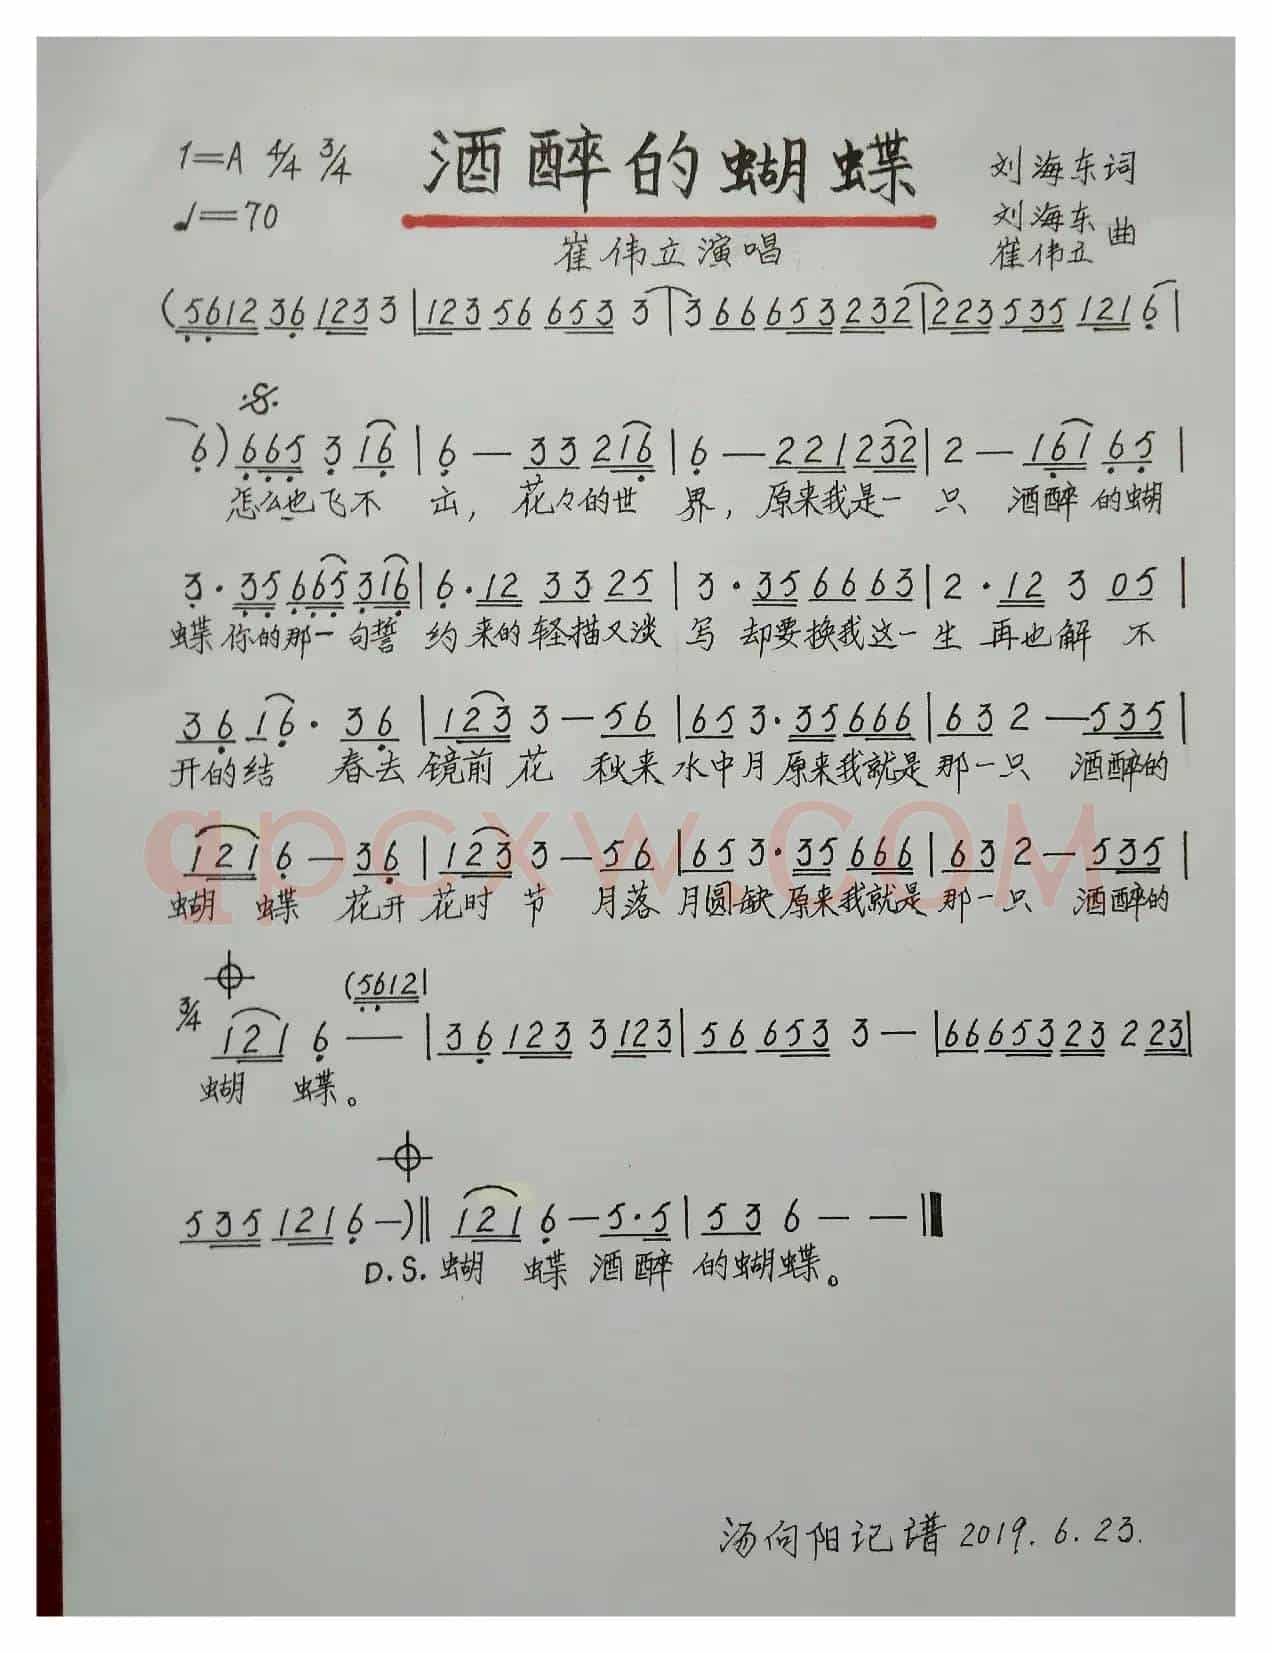 1=A 4/4 3/4 酒醉的蝴蝶 刘海东词
♩=70 刘海东 崔伟立 曲
崔伟立演唱
(5612 36 1233 3 | 123 56 653 3 | 3 66653 232 | 223535 121 6 |
6) 665 3 16 | 6 — 33 216 | 6 — 221232 | 2 — 161 65 |
怎么也飞不 出, 花々的世 界, 原来我是一 只 酒醉 的蝴
3·35 665 316 | 6·12 33 25 | 3·35 66 63 | 2·12 3 05 |
蝶 你的那一 句誓 约 来的 轻描又淡 写 却要换我这一 生 再也解 不
36 16· 36 | 123 3 — 56 | 653·35 666 | 632 — 535 |
开的结 春去 镜前 花 秋来 水中月 原来我就是 那一只 酒醉的
121 6 — 36 | 123 3 — 56 | 653·35 666 | 632 — 535 |
蝴 蝶 花开 花时 节 月落 月圆缺 原来我就是 那一只 酒醉的
(5612|
3/4 121 6 — | 36 123 3 123 | 56 653 3 — | 6665323 2 23|
蝴 蝶。
535 121 6 —)‖ 121 6 — 5·5 | 53 6 — — ‖
D.S. 蝴 蝶 酒醉 的蝴蝶。
汤向阳记谱 2019.6.23.
qpcxw.COM